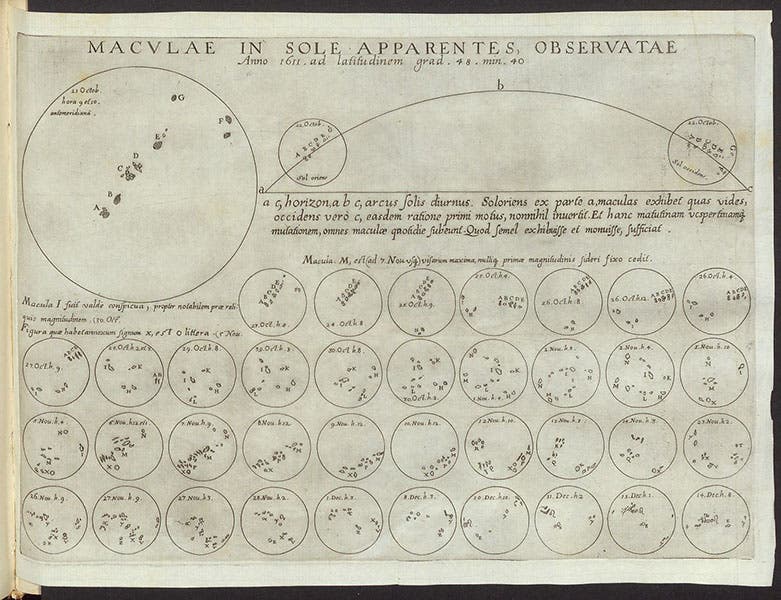 MACVLAE IN SOLE APPARENTES, OBSERVATAE
Anno 1611. ad latitudinem grad. 48. min. 40
21 Octob.
hora 9 et 10.
antemeridiana.
G
F
E
D
C
B
A
b
22. Octob.
A B C D E
Sol oriens
22. Octob.
Sol occidens
a
c
a c, horizon, a b c, arcus solis diurnus. Sol oriens ex parte a, maculas exhibet quas vides,
occidens verò c, easdem ratione primi motus, nonnihil invertit. Et hanc matutinam vespertinamq
mutationem, omnes maculæ quotidie subeunt. Quod semel exhibuisse et monuisse, sufficiat.
Macula. M, est (ad 7. Nou. usq) visarum maxima, nulliq primæ magnitudinis sideri fixo cedit.
Macula I fuit valde conspicua, propter notabilem præ reli-
quis magnitudinem. (30. Oct.
Figura quæ habet annexum signum x, est O littera. (5 Nou.
23. Oct. h. 2
24. Oct. h. 8
25. Oct. h. 9
25. Oct. h. 4
ABCDE
26. Oct. h. 8
26. Oct. h. 12
ABCDE
26. Oct. h. 4
27. Oct. h. 9.
ABCDE
K
AB
H
29. Oct. h. 8.
K
H
29. Oct. h. 2.
K
H
L
30. Oct. h. 8
K
H
30. Oct. h. 2.
1. Nou. h. 8
K
H
L
2. Nou. h.
N
H
L
4. Nou. h. 2
K
N
M
H
L
5. Nou. h. 10
N
M
5. Nou. h. 4.
XO
XO
6. Nou. h. 12
N
XO
7. Nou. h. 9.
XO
8. Nou. h. 12
XO
9. Nou. h. 12.
XO
10. Nou. h. 12.
XO
12. Nou. h. 10.
XO
P
13. Nou. h. 3.
P
14. Nou. h. 3.
P
23. Nou. h. 2
26. Nou. h. 9.
X
27. Nou. h. 9.
X
27. Nou. h. 3.
X
28. Nou. h. 2
X
1. Dec. h. 3.
8. Dec. h. 3.
10. Dec. h. 10.
11. Dec. h. 2
13. Dec. h. 1.
14. Dec. h. 8.